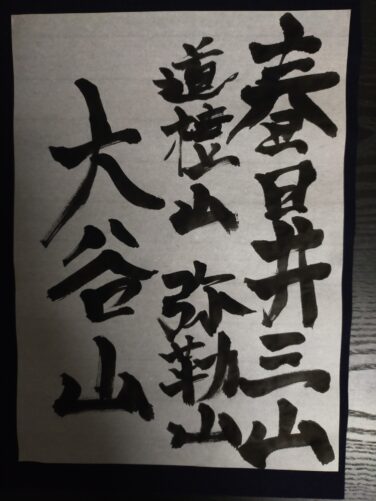 春日井三山
道樹山 弥勒山
大谷山